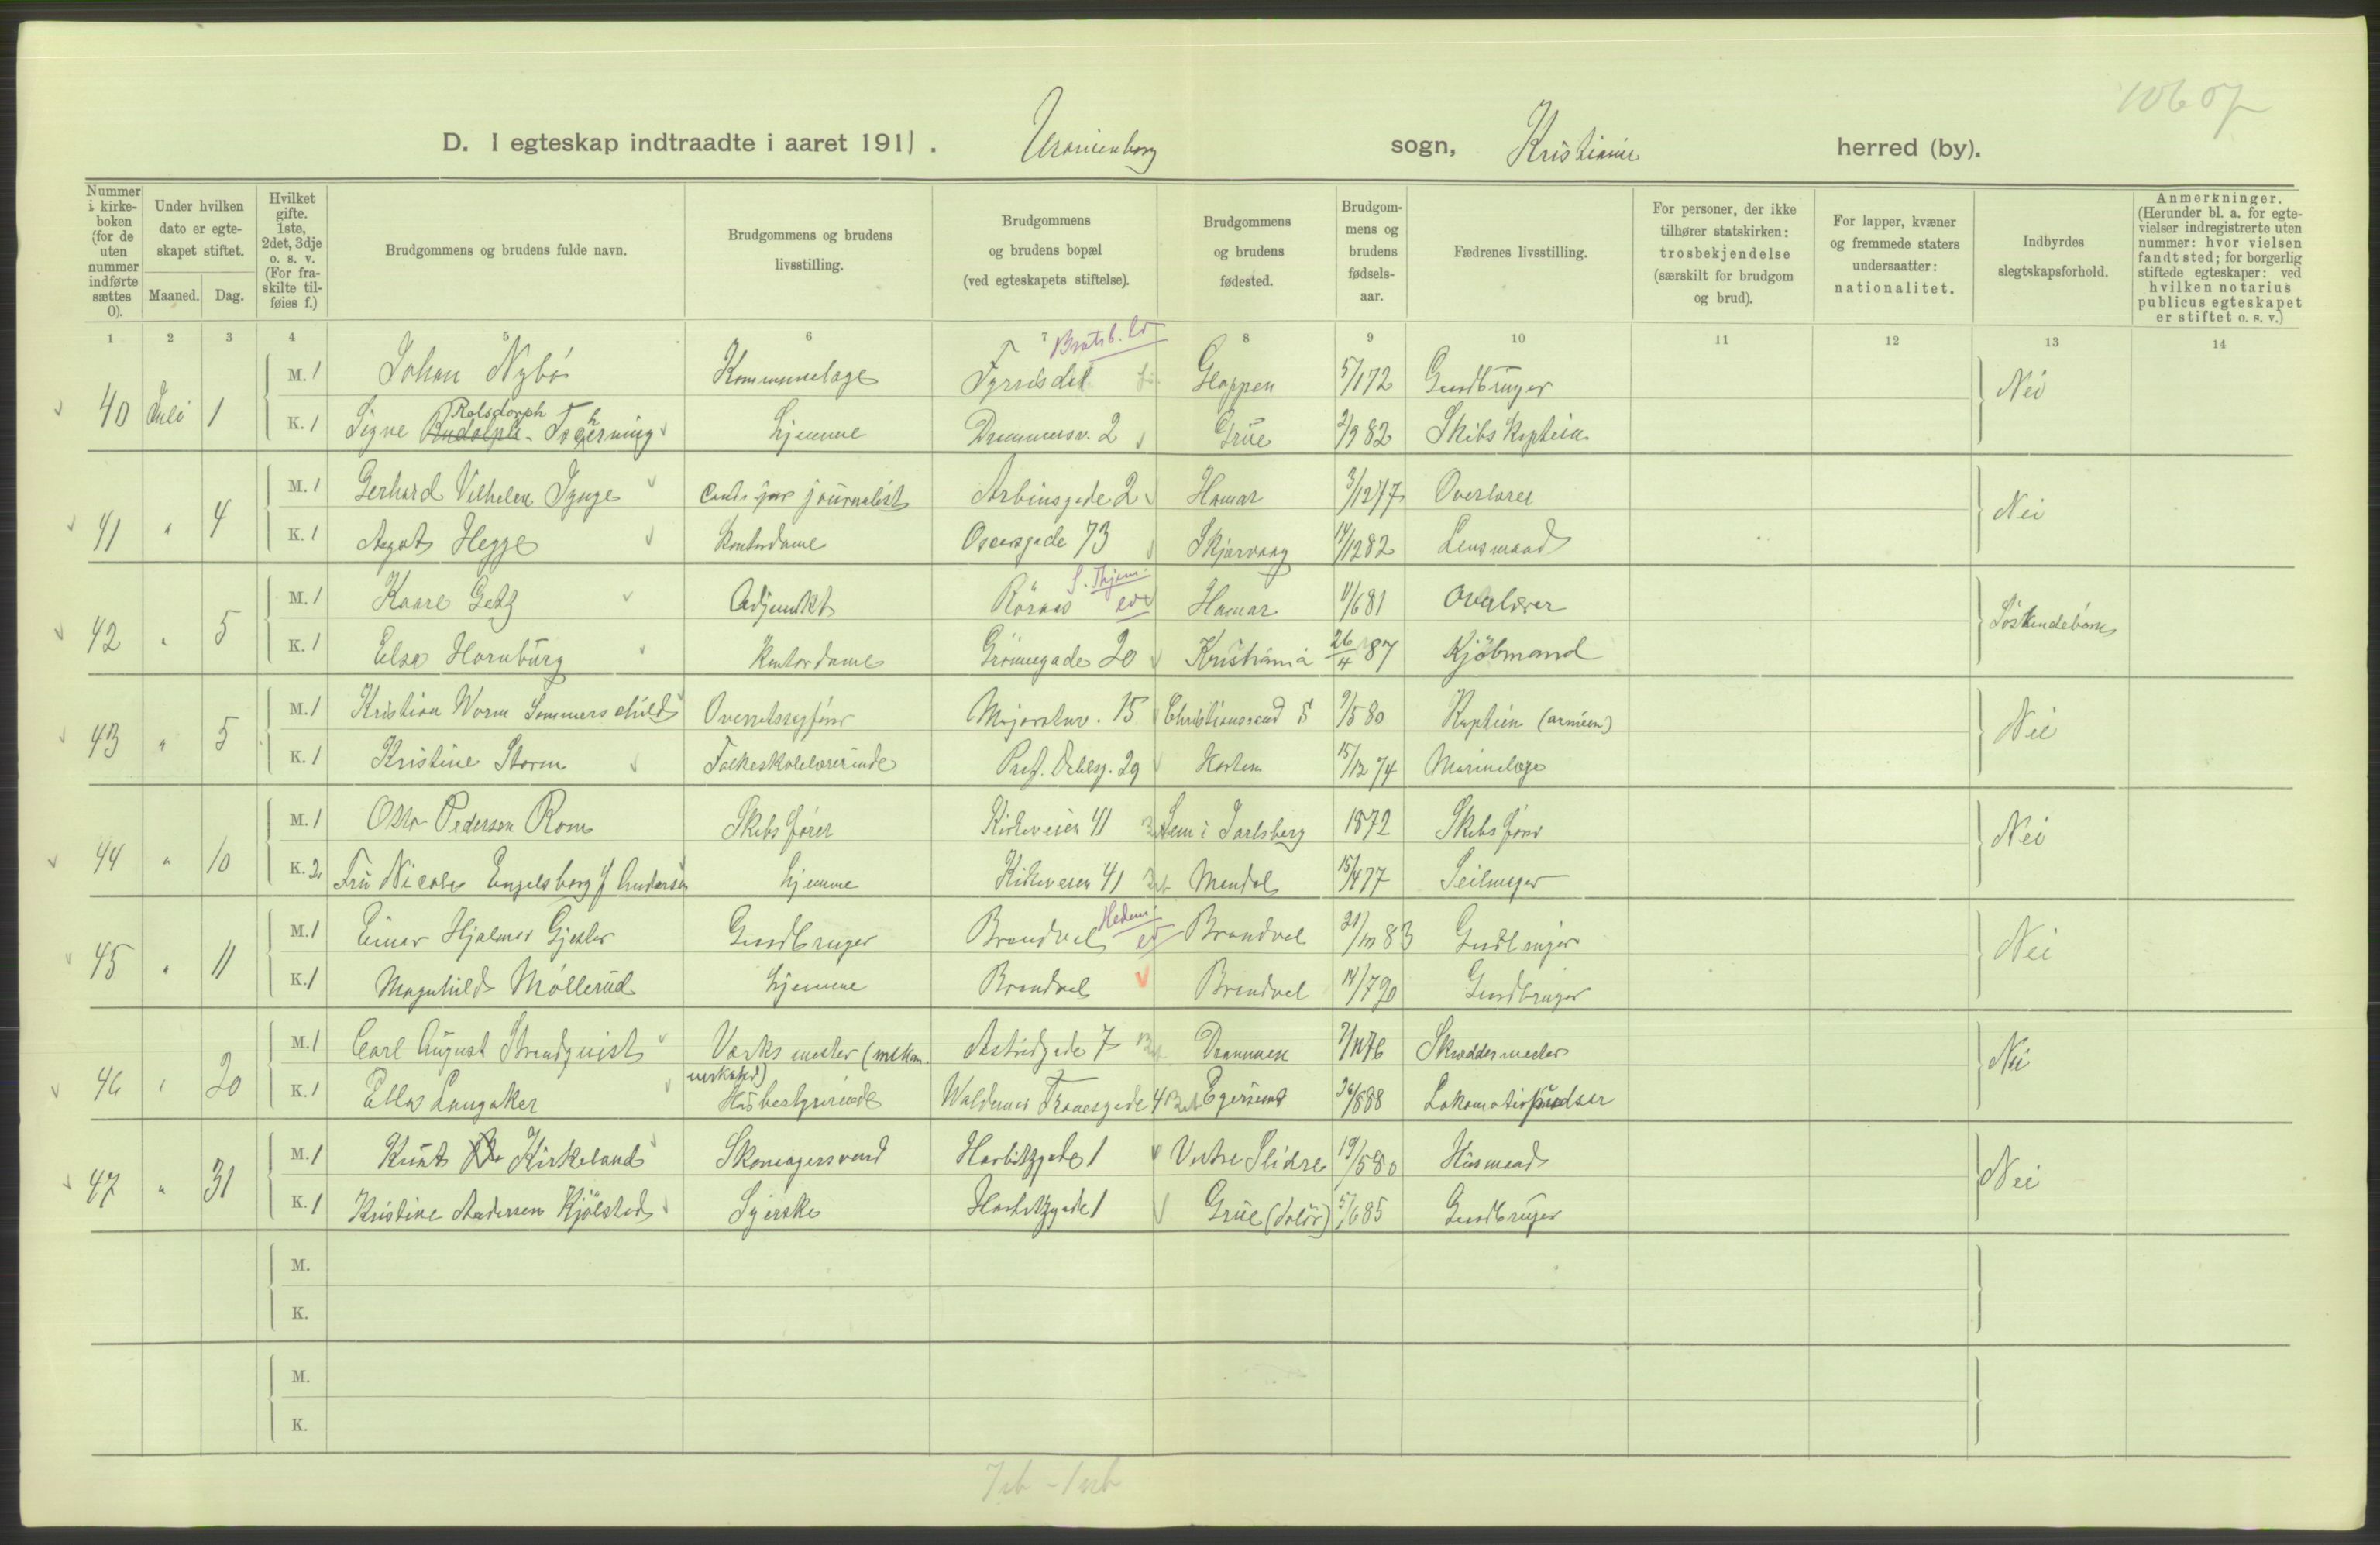 10607
D. I egteskap indtraadte i aaret 1911. Uranienborg sogn, Kristiania herred (by).
Nummer i kirkeboken (for de uten nummer indførte sættes 0).
Under hvilken dato er egteskapet stiftet.
Maaned. Dag.
Hvilket gifte. 1ste, 2det, 3dje o. s. v. (For fraskilte tilføies f.)
Brudgommens og brudens fulde navn.
Brudgommens og brudens livsstilling.
Brudgommens og brudens bopæl (ved egteskapets stiftelse).
Brudgommens og brudens fødested.
Brudgommens og brudens fødselsaar.
Fædrenes livsstilling.
For personer, der ikke tilhører statskirken: trosbekjendelse (særskilt for brudgom og brud).
For lapper, kvæner og fremmede staters undersaatter: nationalitet.
Indbyrdes slegtskapsforhold.
Anmerkninger. (Herunder bl. a. for egtevielser indregistrerte uten nummer: hvor vielsen fandt sted; for borgerlig stiftede egteskaper: ved hvilken notarius publicus egteskapet er stiftet o. s. v.)
1 2 3 4 5 6 7 8 9 10 11 12 13 14
40 Juli 1 M. 1 Johan Nybö Kommunelæge Fyrrisdal Bratsb. Gloppen 5/1 72 Gaardbruger Nei
K. 1 Signe Rudolph Rolsdorph Tscherning hjemme Drammensv. 2 Grue 2/9 82 Skibskaptein
41 " 4 M. 1 Gerhard Vilhelm Jynge cand. jur journalist Arbinsgade 2 Hamar 3/12 77 Overlærer Nei
K. 1 Aagot Hegge Kontordame Oscarsgade 73 Skjervøy 14/12 82 Lensmand
42 " 5 M. 1 Kaare Getz Adjunkt Röraas S. Thjem. Hamar 11/6 81 Overlærer Söskendebarn
K. 1 Elsa Hornburg Kontordame Grönnegade 20 Kristiania 26/4 87 Kjöbmand
43 " 5 M. 1 Kristian Worm Sommerschild Overretssagförer Majorstuv. 15 Christianssand S 9/5 80 Kaptein (armeen) Nei
K. 1 Kristine Storm Folkeskolelærerinde Prof. Dahlsg. 29 Horten 15/12 74 Marinelæge
44 " 10 M. 1 Otto Pedersen Rom Skibsförer Kirkeveien 41 Sem i Jarlsberg 1872 Skibsförer Nei
K. 2 Fru Nicoline Engelsborg f Andersen hjemme Kirkeveien 41 Mandal 15/4 77 Seilmager
45 " 11 M. 1 Einar Hjalmar Gjesler Gaardbruger Brandval Hedem. Brandval 21/10 83 Gaardbruger Nei
K. 1 Magnhild Möllerud hjemme Brandval Brandval 14/7 90 Gaardbruger
46 " 20 M. 1 Carl August Strandquist Værksmester (mekan. verksted) Astridgade 7 Drammen 7/11 76 Skreddermester Nei
K. 1 Ella Langaker Husbestyrerinde Waldemar Thranesgade 4 Egersund 26/8 88 Lokomotivpudser
47 " 31 M. 1 Knut Kirkeland Skomagersvend Harbitzgade 1 Vestre Slidre 19/5 80 Husmand Nei
K. 1 Kristine Andersen Kjölstad Syerske Harbitzgade 1 Grue (Solör) 5/6 85 Gaardbruger
M.
K.
M.
K.